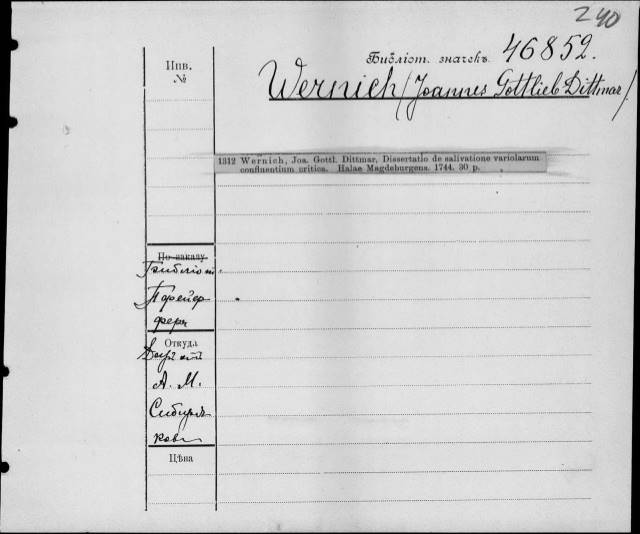 240
Библіот. значекъ 46852.
Wernich (Joannes Gottlieb Dittmar)
Инв.
№
1312 Wernich, Joa. Gottl. Dittmar, Dissertatio de salivatione variolarum
confluentium critica. Halae Magdeburgens. 1744. 30 p.
По заказу
Библіот.
Пфейф
фера
Откуда
А. М.
Сибиря
кова
Цѣна